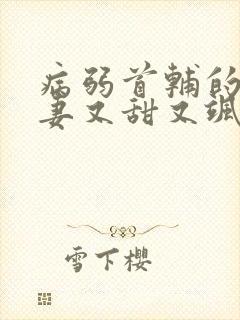 病弱首輔的
妻又甜又颯
雪下櫻